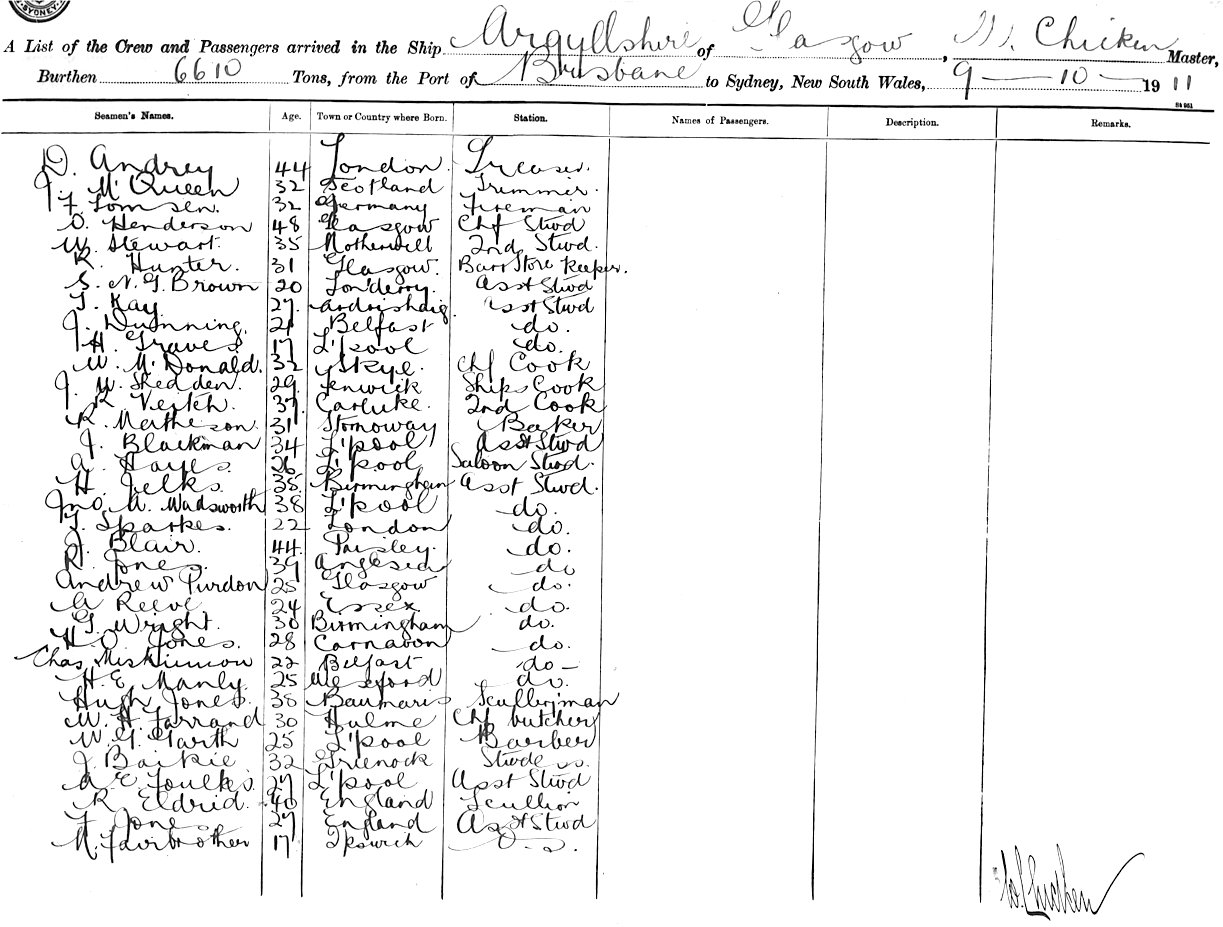 SYDNEY
A List of the Crew and Passengers arrived in the Ship Argyllshire of Glasgow, W. Chicken Master,
Burthen 6610 Tons, from the Port of Brisbane to Sydney, New South Wales, 9 — 10 — 1911
Seamen's Names. Age. Town or Country where Born. Station. Names of Passengers. Description. Remarks.
D. Andrey 44 London Greaser.
J. McQueen 32 Scotland Trimmer.
F. Tomsen. 32 Germany Fireman
D. Henderson 48 Glasgow Chf Stwd
W. Stewart. 35 Motherwell 2nd Stwd.
R. Hunter. 31 Glasgow. Barr Store Keeper.
S. N. G. Brown 20 Lon'derry. Asst Stwd
T. Kay 27. Ardrishaig. Asst Stwd
J. Dunning. 21 Belfast do.
H. Graves 17 L'pool do.
W. McDonald. 32 Skye. Chf Cook
J. W. Shedden. 29. Fenwick Ships Cook
J. R. Veitch. 37 Carluke. 2nd Cook
R. Matheson. 31 Stornoway Baker
J. Blackman 34 L'pool Asst Stwd
A. Hayes. 26 L'pool Saloon Stwd.
H. Jelks. 38. Birmingham Asst Stwd.
Jno. W. Wadsworth 38 L'pool do.
T. Sparkes. 22 London do.
J. Blair. 44. Paisley. do.
R. Jones. 39 Anglesea do
Andrew Purdon 25 Glasgow do.
A Reeve 24 Essex do.
G. Wright. 30 Birmingham do.
H. O. Jones. 28 Carnabon do.
Chas. 22 Belfast do —
H. E. Manly. 25 Wexford do.
Hugh Jones. 38 Baumaris Sculleryman
W. H. Farrand 30 Hulme Chf butcher
W. G. Garth 25 L'pool Barber
J. Baikie 32 Greenock
A E Foulkes 27 L'pool Asst Stwd
R Eldrid. 40 England Scullion
F Jones 27 England Asst Stwd
M. Fairbrother 17 Ipswich
W. Chicken